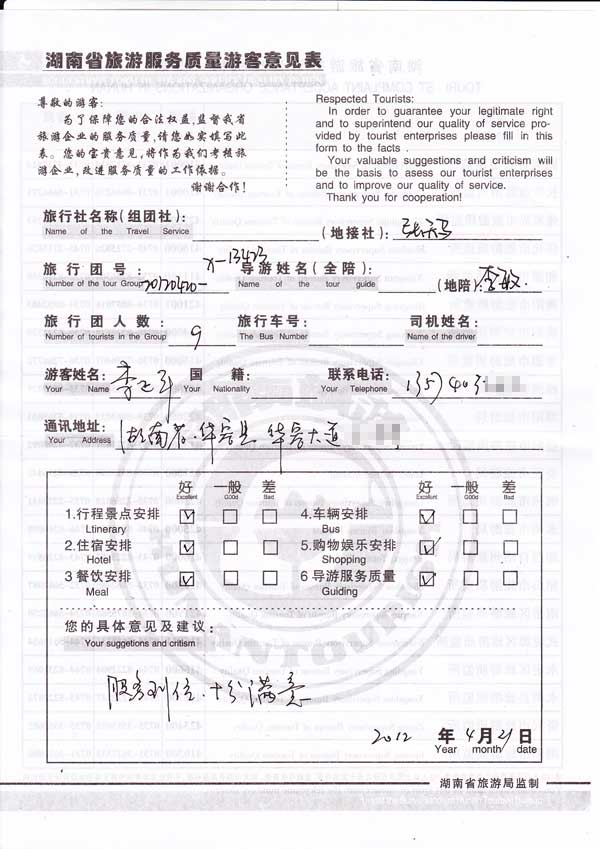 湖南省旅游服务质量游客意见表
尊敬的游客：
为了保障您的合法权益，监督我省
旅游企业的服务质量，请您如实填写此
表。您的宝贵意见，将作为我们考核旅
游企业，改进服务质量的工作依据。
谢谢合作！
Respected Tourists:
In order to guarantee your legitimate right
and to superintend our quality of service pro-
vided by tourist enterprises please fill in this
form to the facts .
Your valuable suggestions and criticism will
be the basis to asess our tourist enterprises
and to improve our quality of service.
Thank you for cooperation!
旅行社名称（组团社）： （地接社）：
Name of the Travel Service
旅行团号： X-13423 导游姓名（全陪）： （地陪）：李敏
Number of the tour Group 20120420- Name of the tour guide
旅行团人数： 9 旅行车号： 司机姓名：
Number of tourists in the Group The Bus Number Name of the driver
游客姓名： 国籍： 联系电话：
Your Name Your Nationality Your Telephone
通讯地址： 湖南省·华容县 华容大道
Your Address
好 一般 差 好 一般 差
Excellent GOod Bad Excellent GOod Bad
1.行程景点安排 4.车辆安排
Ltinerary Bus
2.住宿安排 5.购物娱乐安排
Hotel Shopping
3 餐饮安排 6 导游服务质量
Meal Guiding
您的具体意见及建议：
Your suggetions and critism
服务到位·十分满意
2012 年 4 月 21 日
Year month date
湖南省旅游局监制